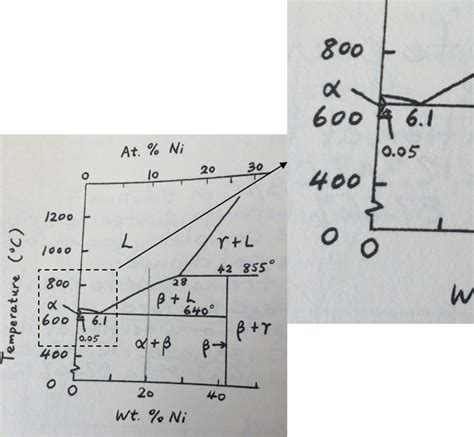 At. % Ni
0 10 20 30
Temperature (°C)
1200
1000
800
600
400
0
L
γ+L
28
42 855°
α
6.1
0.05
β+L
640°
α+β
β→
β+γ
0 20 40
Wt. % Ni
800
α
600 6.1
0.05
400
0
0
W